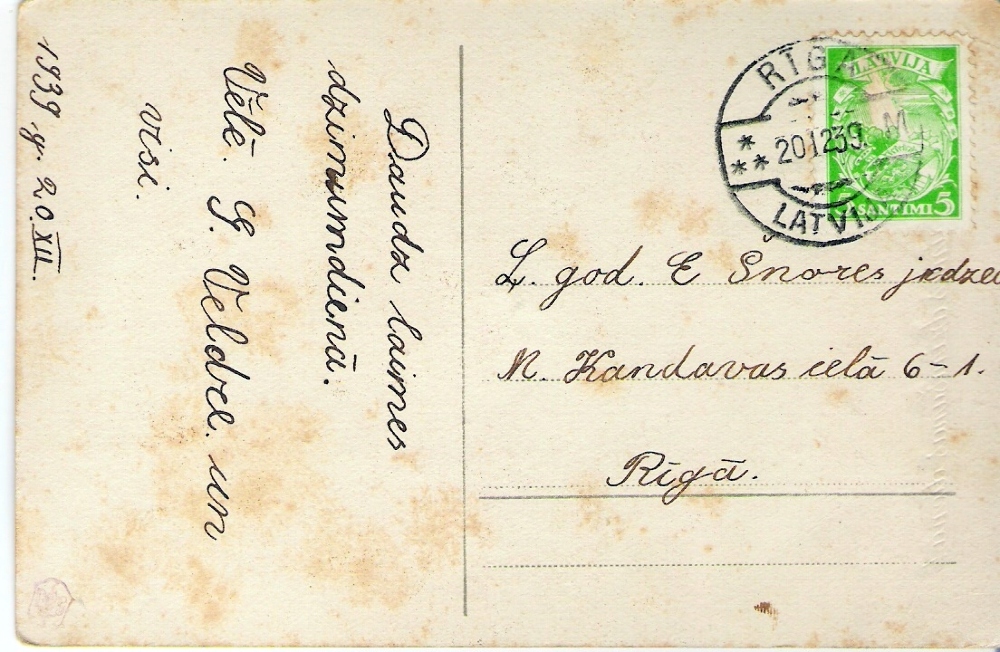 Daudz laimes
dzimumdienā.
Vēlē. G. Veldre. un
visi.
1939. g. 20. XII.
RĪGA
201239. M
LATV
LATVIJA
5 SANTIMI 5
L. god. E Šnores jkdzei
M. Kandavas ielā 6-1.
Rīgā.